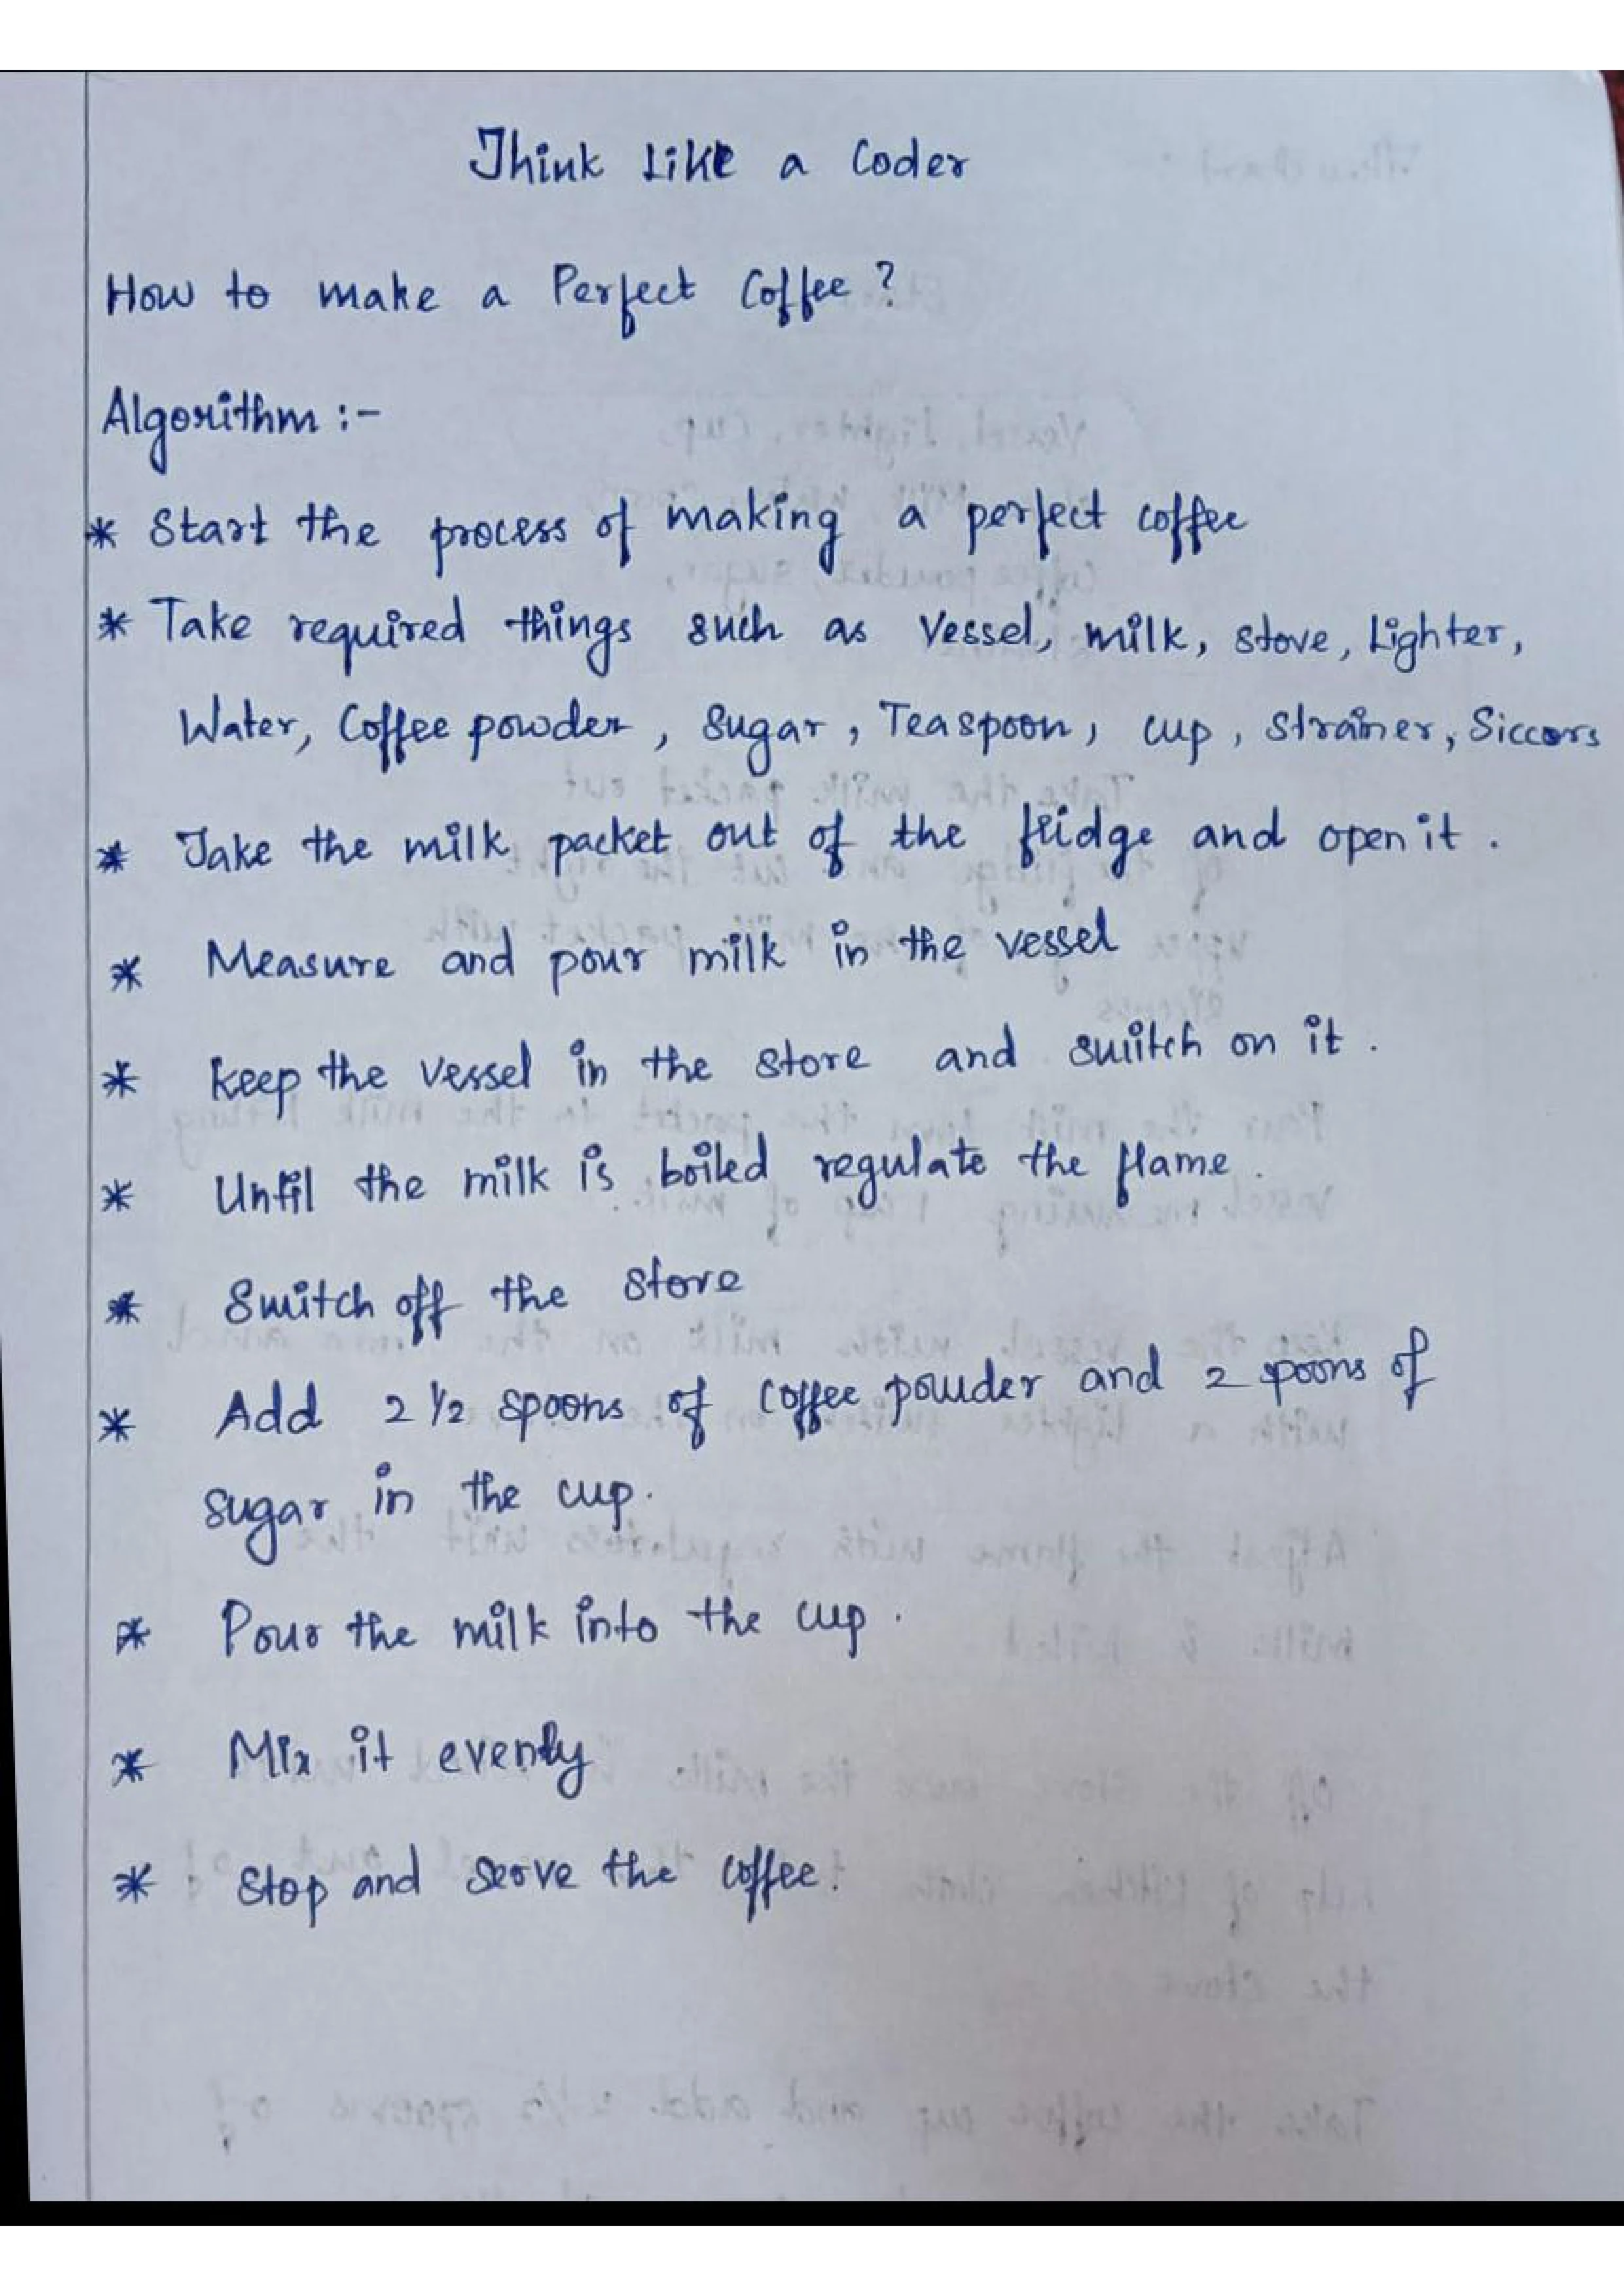 Think Like a Coder
How to make a Perfect Coffee ?
Algorithm :-
* Start the process of making a perfect coffee
* Take required things such as Vessel, milk, stove, Lighter,
Water, Coffee powder, Sugar, Teaspoon, cup, strainer, Siccors
* Take the milk packet out of the fridge and open it .
* Measure and pour milk in the vessel
* keep the vessel in the stove and switch on it .
* Until the milk is boiled regulate the flame .
* Switch off the stove
* Add 2 1/2 spoons of coffee powder and 2 spoons of
sugar in the cup.
* Pour the milk into the cup .
* Mix it evenly
* Stop and serve the coffee.